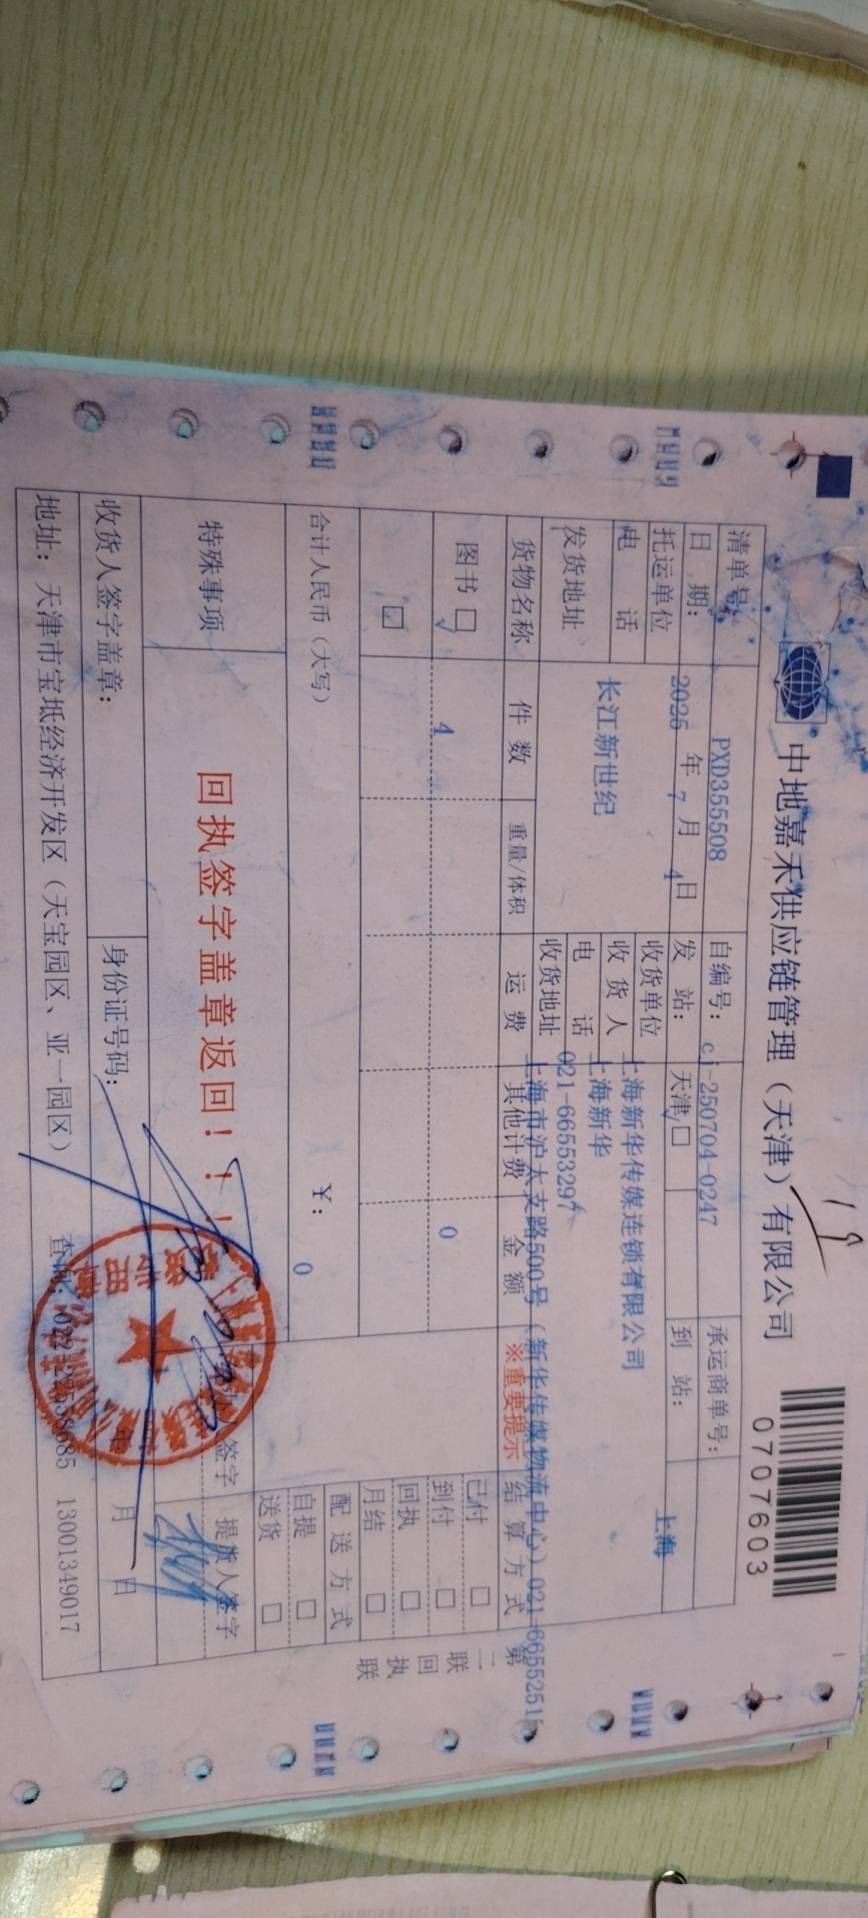 中地嘉禾供应链管理（天津）有限公司
0707603
清单号： PXD355508 自编号： cj-250704-0247 承运商单号：
日 期： 2025 年 7 月 4 日 发 站： 天津 到 站： 上海
托运单位 收货单位 上海新华传媒连锁有限公司
长江新世纪 收 货 人 上海新华
电 话 电 话 021-66553297
发货地址 收货地址 上海市沪太支路500号（新华传媒物流中心）021-6655251
货物名称 件 数 重量/体积 运 费 其他计费 金 额 ※重要提示 结 算 方 式
图书 □ √ 4 0 已付 □
到付 □
□ 回执 □
月结 □
合计人民币（大写） ￥： 0 配 送 方 式
自提 □
送货 □
特殊事项 回执签字盖章返回！！！ 签字 提货人签字
收货人签字盖章： 身份证号码： 年 月 日
地址：天津市宝坻经济开发区（天宝园区、亚一园区） 13001349017
第二联 回执联